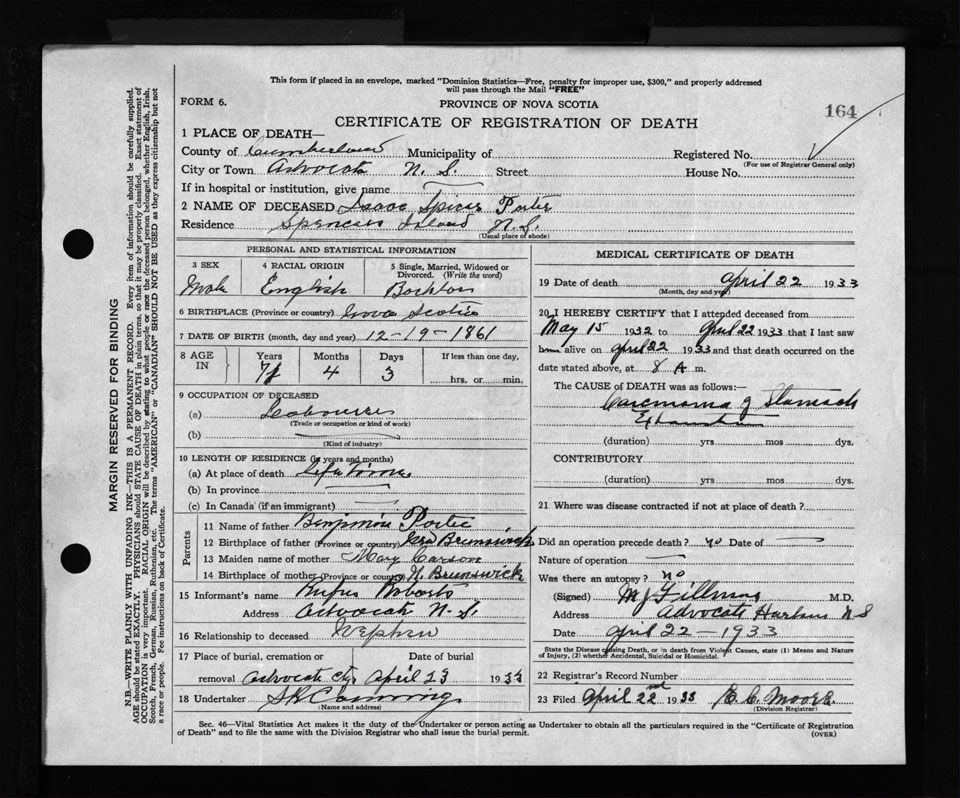 This form if placed in an envelope, marked "Dominion Statistics—Free, penalty for improper use, $300," and properly addressed
will pass through the Mail "FREE"
FORM 6. PROVINCE OF NOVA SCOTIA 164
CERTIFICATE OF REGISTRATION OF DEATH
1 PLACE OF DEATH—
County of Cumberland Municipality of Registered No.
(For use of Registrar General only)
City or Town Advocate N. S. Street House No.
If in hospital or institution, give name
2 NAME OF DECEASED Isaac Spicer Porter
Residence Spencers Island N.S.
(Usual place of abode)
PERSONAL AND STATISTICAL INFORMATION
3 SEX 4 RACIAL ORIGIN 5 Single, Married, Widowed or
Divorced. (Write the word)
Male English
6 BIRTHPLACE (Province or country) Nova Scotia
7 DATE OF BIRTH (month, day and year) 12-19-1861
8 AGE IN Years Months Days If less than one day,
71 4 3 hrs. or min.
9 OCCUPATION OF DECEASED
(a) Labourer
(Trade or occupation or kind of work)
(b)
(Kind of industry)
10 LENGTH OF RESIDENCE (in years and months)
(a) At place of death Life Time
(b) In province
(c) In Canada (if an immigrant)
Parents
11 Name of father Benjimine Porter
12 Birthplace of father (Province or country) New Brunswick
13 Maiden name of mother Mary Carson
14 Birthplace of mother (Province or country) N. Brunswick
15 Informant's name Rufus Roberts
Address Advocate N. S.
16 Relationship to deceased Nephew
17 Place of burial, cremation or Date of burial
removal Advocate April 23 1933
18 Undertaker Canning
(Name and address)
MEDICAL CERTIFICATE OF DEATH
19 Date of death April 22 1933
(Month, day and year)
20 I HEREBY CERTIFY that I attended deceased from
May 15 1932 to April 22 1933 that I last saw
him alive on April 22 1933 and that death occurred on the
date stated above, at 8 A m.
The CAUSE OF DEATH was as follows:—
Carcinoma of Stomach
Exhaustion
(duration) yrs mos dys.
CONTRIBUTORY
(duration) yrs. mos. dys.
21 Where was disease contracted if not at place of death?
Did an operation precede death? no Date of
Nature of operation
Was there an autopsy? no
(Signed) Fillmore M.D.
Address Advocate Harbor N S
Date April 22-1933
State the Disease causing Death, or in death from Violent Causes, state (1) Means and Nature
of Injury, (2) whether Accidental, Suicidal or Homicidal.
22 Registrar's Record Number
23 Filed April 22nd 1933 E. C. Moore
(Division Registrar)
Sec. 46—Vital Statistics Act makes it the duty of the Undertaker or person acting as Undertaker to obtain all the particulars required in the "Certificate of Registration
of Death" and to file the same with the Division Registrar who shall issue the burial permit. (OVER)
MARGIN RESERVED FOR BINDING
N.B.—WRITE PLAINLY WITH UNFADING INK—THIS IS A PERMANENT RECORD. Every item of information should be carefully supplied.
AGE should be stated EXACTLY. PHYSICIANS should STATE CAUSE OF DEATH in plain terms, so that it may be properly classified. Exact statement of
OCCUPATION is very important. RACIAL ORIGIN will be described by stating to what people or race the deceased person belonged, whether English, Irish,
Scotch, French, German, Russian, Ruthenian, etc. The terms "AMERICAN" or "CANADIAN" SHOULD NOT BE USED as they express citizenship but not
a race or people. Fee instructions on back of Certificate.